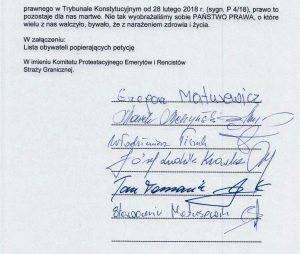 prawnego w Trybunale Konstytucyjnym od 28 lutego 2018 r. (sygn. P 4/18), prawo to
pozostaje dla nas martwe. Nie tak wyobrażaliśmy sobie PAŃSTWO PRAWA, o które
wielu z nas walczyło, bywało, że z narażeniem zdrowia i życia.
W załączeniu:
Lista obywateli popierających petycję
W imieniu Komitetu Protestacyjnego Emerytów i Rencistów
Straży Granicznej.
Marek
Włodzimierz
Józef Ludwik
Tom Romanik
Sławomir